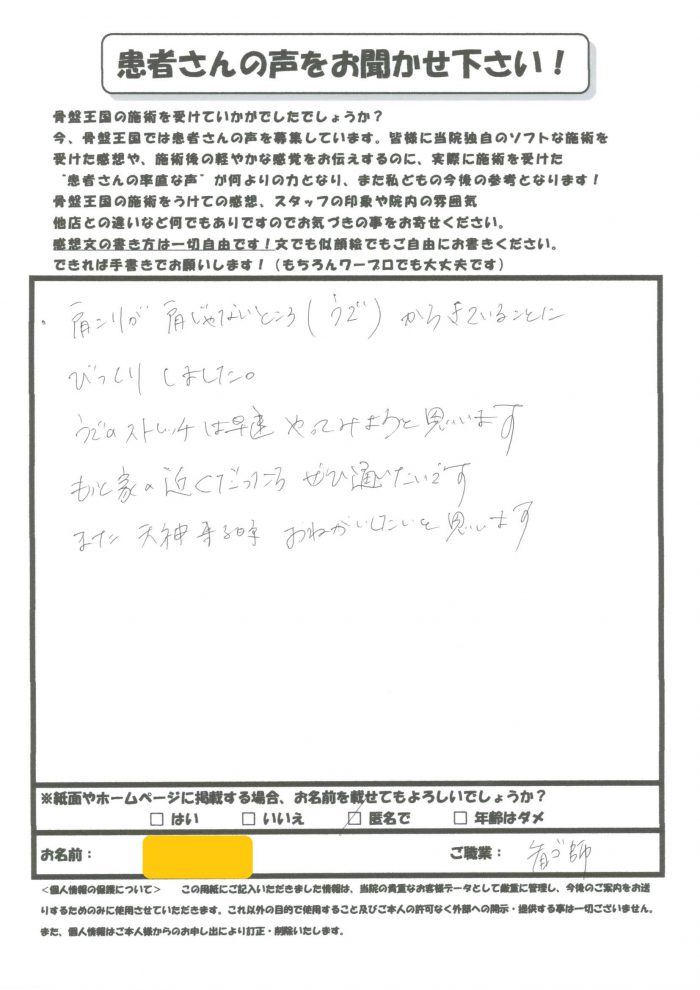 患者さんの声をお聞かせ下さい！
骨盤王国の施術を受けていかがでしたでしょうか？
今、骨盤王国では患者さんの声を募集しています。皆様に当院独自のソフトな施術を
受けた感想や、施術後の軽やかな感覚をお伝えするのに、実際に施術を受けた
"患者さんの率直な声"が何よりの力となり、また私どもの今後の参考となります！
骨盤王国の施術をうけての感想、スタッフの印象や院内の雰囲気
他店との違いなど何でもありですのでお気づきの事をお寄せください。
感想文の書き方は一切自由です！文でも似顔絵でもご自由にお書きください。
できれば手書きでお願いします！（もちろんワープロでも大丈夫です）
・肩こりが 肩じゃないところ(うで) からきていることに
びっくりしました。
うでのストレッチは早速 やってみようと思います
もっと家の近くだったら ぜひ通いたいです
また 天神来る時 おねがいしたいと思います
※紙面やホームページに掲載する場合、お名前を載せてもよろしいでしょうか？
□ はい □ いいえ ☑ 匿名で □ 年齢はダメ
お名前： ご職業： 看ゴ師
＜個人情報の保護について＞ この用紙にご記入いただきました情報は、当院の貴重なお客様データとして厳重に管理し、今後のご案内をお送
りするためのみに使用させていただきます。これ以外の目的で使用すること及びご本人の許可なく外部への開示・提供する事は一切ございません。
また、個人情報はご本人様からのお申し出により訂正・削除いたします。